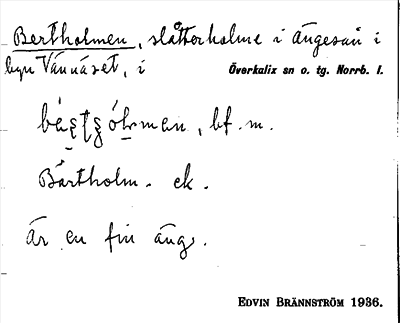 Bertholmen, slåtterholme i Ängesån i
byn Vännäset, i Överkalix sn o. tg. Norrb. l.
bf. m.
Bartholm. ek.
Är en fin äng.
EDVIN BRÄNNSTRÖM 1936.